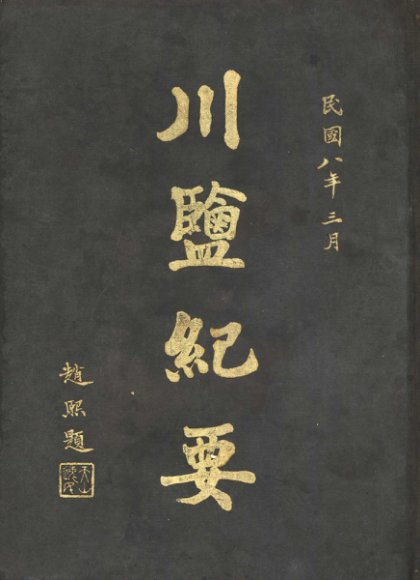 民國八年三月
川鹽紀要
趙熙題